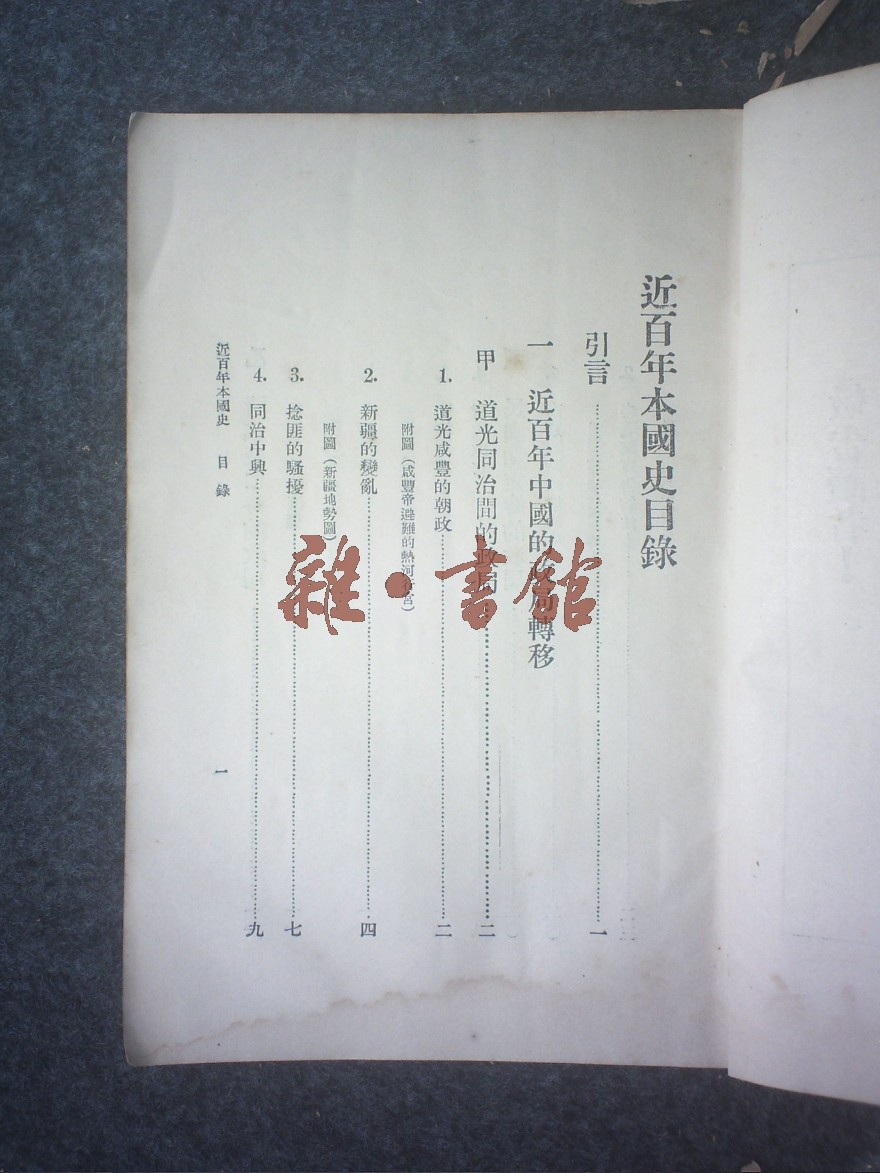 近百年本國史目錄
引言……一
一　近百年中國的政局轉移
甲　道光同治間的政局……二
1. 道光咸豐的朝政……二
附圖（咸豐帝避難的熱河行宮）
2. 新疆的變亂……四
附圖（新疆地勢圖）
3. 捻匪的騷擾……七
4. 同治中興……九
近百年本國史　目錄　一
雜·書館